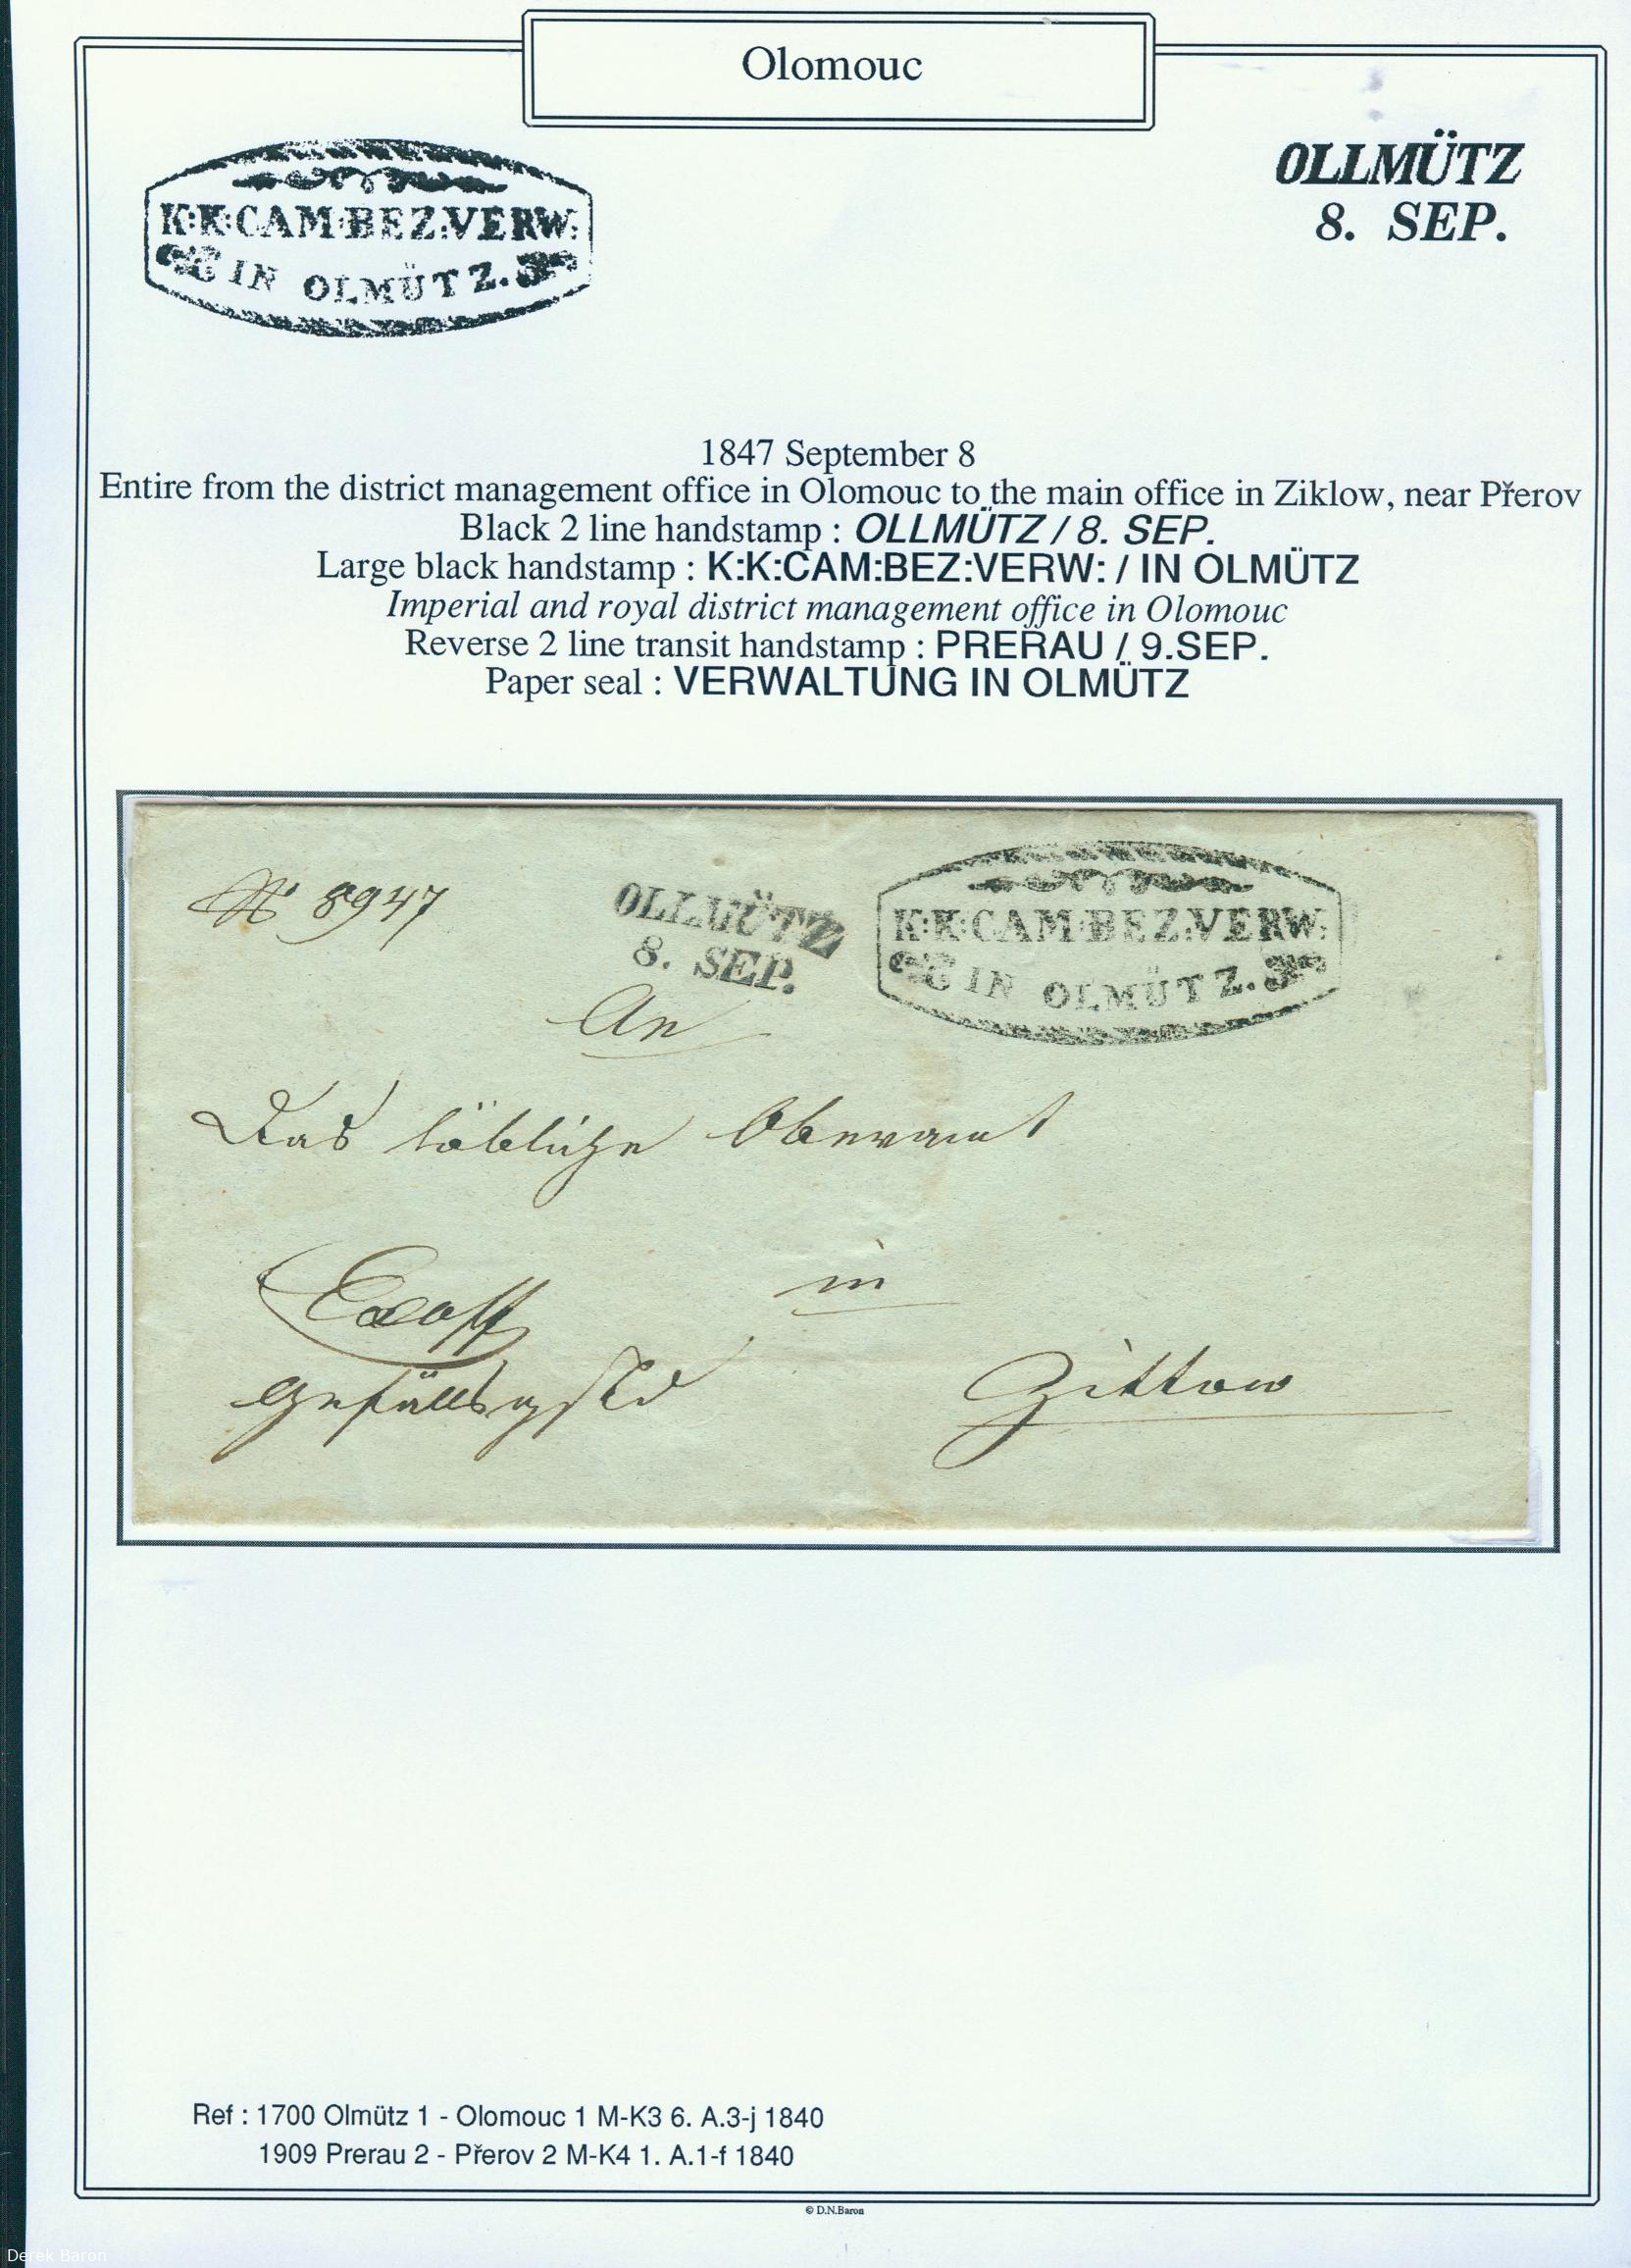 Olomouc
K:K:CAM:BEZ:VERW:
IN OLMÜTZ.
OLLMÜTZ
8. SEP.
1847 September 8
Entire from the district management office in Olomouc to the main office in Ziklow, near Přerov
Black 2 line handstamp : OLLMÜTZ / 8. SEP.
Large black handstamp : K:K:CAM:BEZ:VERW: / IN OLMÜTZ
Imperial and royal district management office in Olomouc
Reverse 2 line transit handstamp : PRERAU / 9.SEP.
Paper seal : VERWALTUNG IN OLMÜTZ
No 8947
OLLMÜTZ
8. SEP.
K:K:CAM:BEZ:VERW:
IN OLMÜTZ.
An
Das löbliche Oberamt
in
Exoff
Zittow
Ref : 1700 Olmütz 1 - Olomouc 1 M-K3 6. A.3-j 1840
1909 Prerau 2 - Přerov 2 M-K4 1. A.1-f 1840
© D.N.Baron
Derek Baron